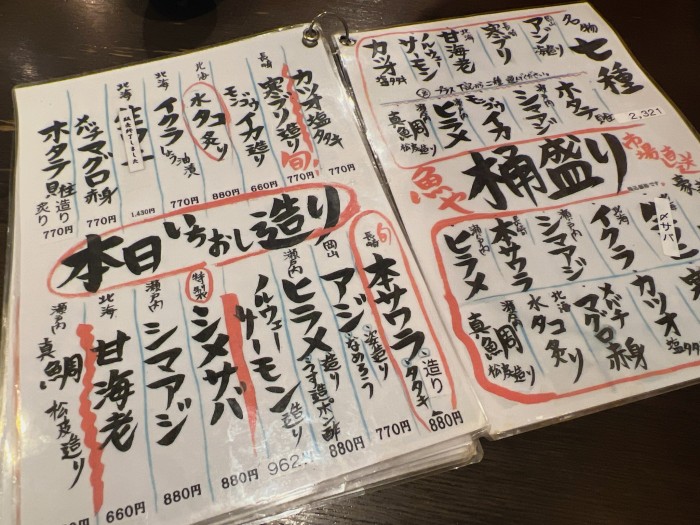 カツオ塩タタキ
770円
長崎 寒ブリ造り 旬!
770円
モンゴウイカ造り
660円
北海 水タコ炙り
880円
北海 イクラ しょう油漬
770円
北海
1,430円
メバチマグロ赤身
770円
ホタテ貝柱造り 炙り
770円
本日いちおし造り
長崎 旬 本サワラ 造り タタキ
880円
岡山 アジ 姿造り なめろう
770円
瀬戸内 ヒラメ 造り うす造ポン酢
880円
ノルウェーサーモン造り
962円
特製 シメサバ
880円
瀬戸内 シマアジ
880円
北海 甘海老
660円
瀬戸内 真鯛 松皮造り
名物 七種
岡山 アジ 造り
長崎 寒ブリ
北海 甘海老
ノルウェーサーモン
カツオ 塩タタキ
瀬戸内 シマアジ
モンゴウイカ
瀬戸内 ヒラメ
瀬戸内 真鯛 松皮造り
2,321
市場直送
魚や 桶盛り
シメサバ
北海 イクラ
瀬戸内 シマアジ
長崎 本サワラ
瀬戸内 ヒラメ
カツオ 塩タタキ
メバチマグロ赤身
北海 水タコ炙り
瀬戸内 真鯛 松皮造り